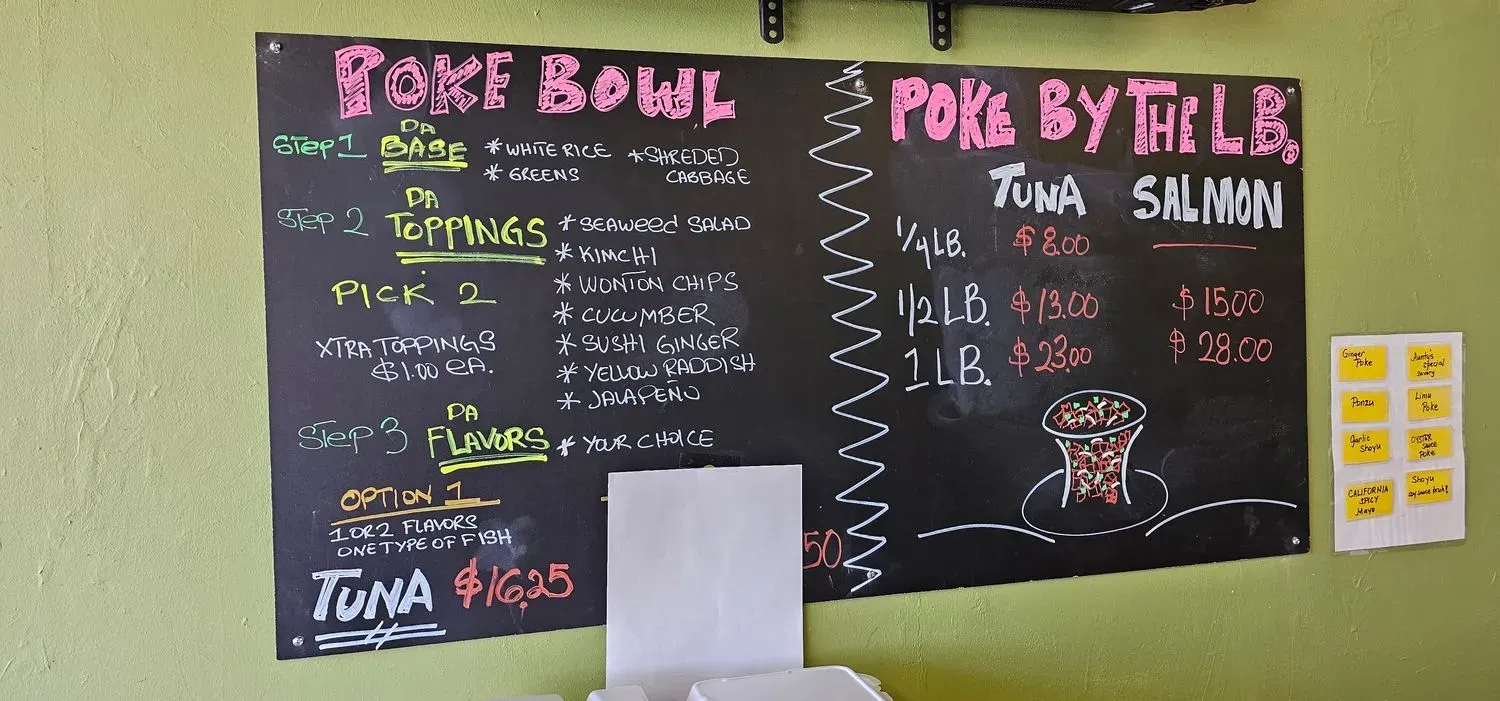 POKE BOWL
Step 1 DA BASE
* WHITE RICE
* SHREDED CABBAGE
* GREENS
Step 2 DA TOPPINGS
* SEAWEED SALAD
* KIMCHI
PICK 2
* WONTON CHIPS
* CUCUMBER
XTRA TOPPINGS
$1.00 EA.
* SUSHI GINGER
* YELLOW RADDISH
* JALAPEÑO
Step 3 DA FLAVORS
* YOUR CHOICE
OPTION 1
1 OR 2 FLAVORS
ONE TYPE OF FISH
TUNA $16.25
50
POKE BY THE LB.
TUNA SALMON
1/4 LB. $8.00
1/2 LB. $13.00 $15.00
1 LB. $23.00 $28.00
Ginger Poke
Aunty's special savory
Ponzu
Limu Poke
Garlic Shoyu
OYSTER SAUCE Poke
CALIFORNIA SPICY Mayo
Shoyu
soy sauce